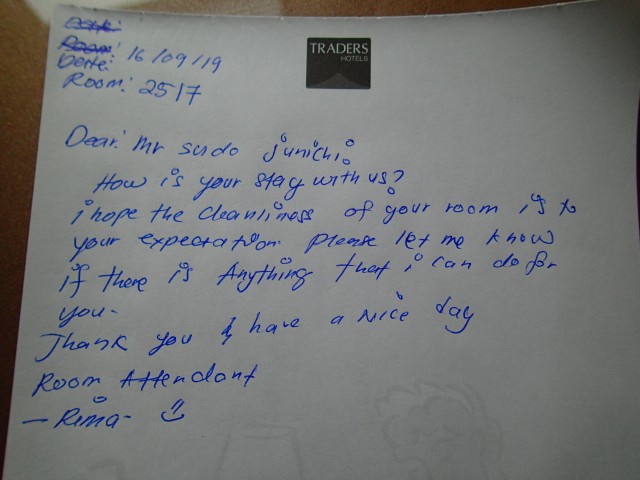 Date:
Room:
TRADERS
HOTELS
Date: 16/09/19
Room: 2517
Dear: Mr sudo junichi.
How is your stay with us?
i hope the cleanliness of your room is to
your expectation. please let me know
if there is Anything that i can do for
you-
Thank you & have a Nice day
Room Attendant
- Rima -